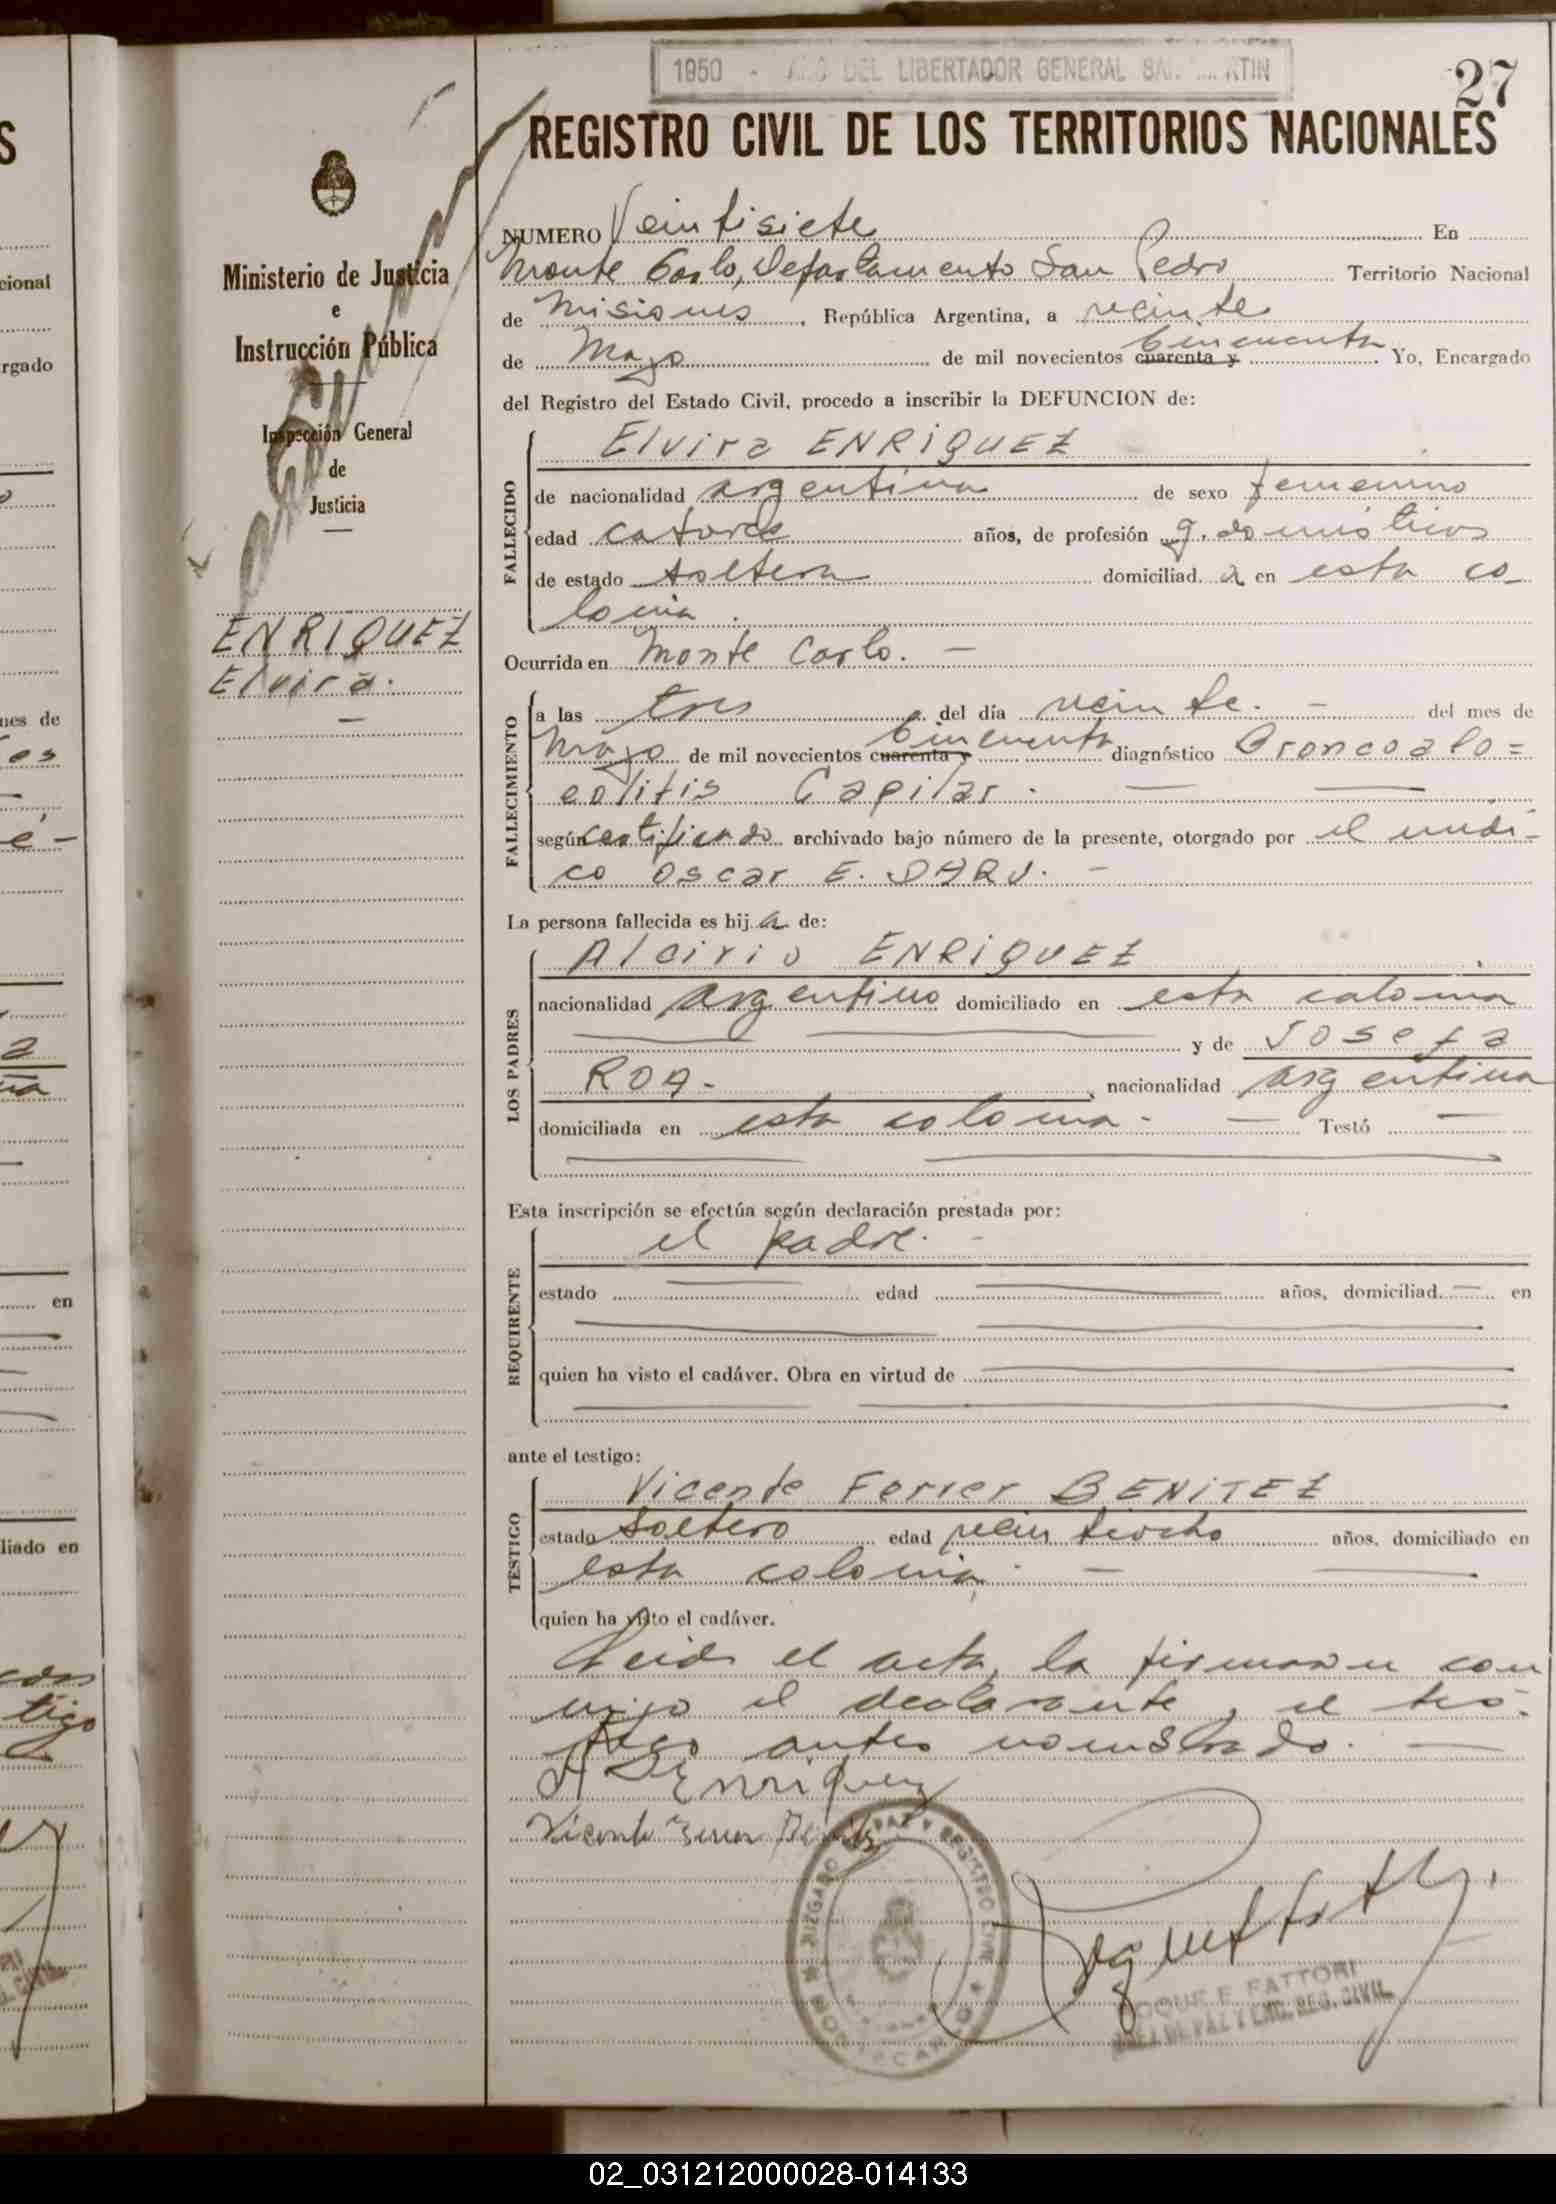 1950 - AÑO DEL LIBERTADOR GENERAL SAN MARTIN
27
REGISTRO CIVIL DE LOS TERRITORIOS NACIONALES
Ministerio de Justicia
e
Instrucción Pública
Inspección General
de
Justicia
ENRIQUEZ
Elvira.
NUMERO Veintisiete En
Monte Carlo, Departamento San Pedro Territorio Nacional
de Misiones, República Argentina, a veinte
de Mayo de mil novecientos cuarenta y cincuenta. Yo, Encargado
del Registro del Estado Civil, procedo a inscribir la DEFUNCION de:
FALLECIDO
Elvira ENRIQUEZ
de nacionalidad argentina de sexo femenino
edad catorce años, de profesión q. domésticos
de estado soltera domiciliad a en esta co-
lonia.
Ocurrida en Monte Carlo. —
FALLECIMIENTO
a las tres del día veinte. — del mes de
Mayo de mil novecientos cuarenta y cincuenta diagnóstico Broncoalo=
eolitis Capilar. — —
según certificado archivado bajo número de la presente, otorgado por el médi-
co Oscar E. DARU. —
La persona fallecida es hij a de:
LOS PADRES
Alcirio ENRIQUEZ
nacionalidad argentino domiciliado en esta colonia
y de Josefa
ROA. nacionalidad argentina
domiciliada en esta colonia. — Testó —
Esta inscripción se efectúa según declaración prestada por:
REQUIRENTE
el padre. —
estado — edad — años, domiciliad — en
quien ha visto el cadáver. Obra en virtud de —
ante el testigo:
TESTIGO
Vicente Ferrer BENITEZ
estado soltero edad veintiocho años, domiciliado en
esta colonia. — —
quien ha visto el cadáver.
Leida el acta, la firmaron con
migo el declarante y el tes-
tigo antes nombrado. —
A Enriquez
Vicente Ferrer Benitez
JUZGADO DE PAZ Y REGISTRO CIVIL
ROQUE E. FATTORI
JUEZ DE PAZ Y ENC. REG. CIVIL
02_031212000028-014133